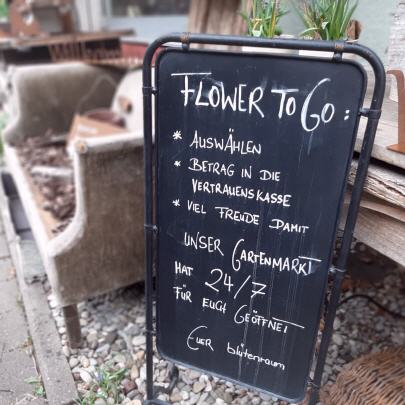 FLOWER TO GO:
* AUSWÄHLEN
* BETRAG IN DIE
VERTRAUENSKASSE
* VIEL FREUDE DAMIT
UNSER GARTENMARKT
HAT 24/7
FÜR EUCH GEÖFFNET
EUER blütenraum